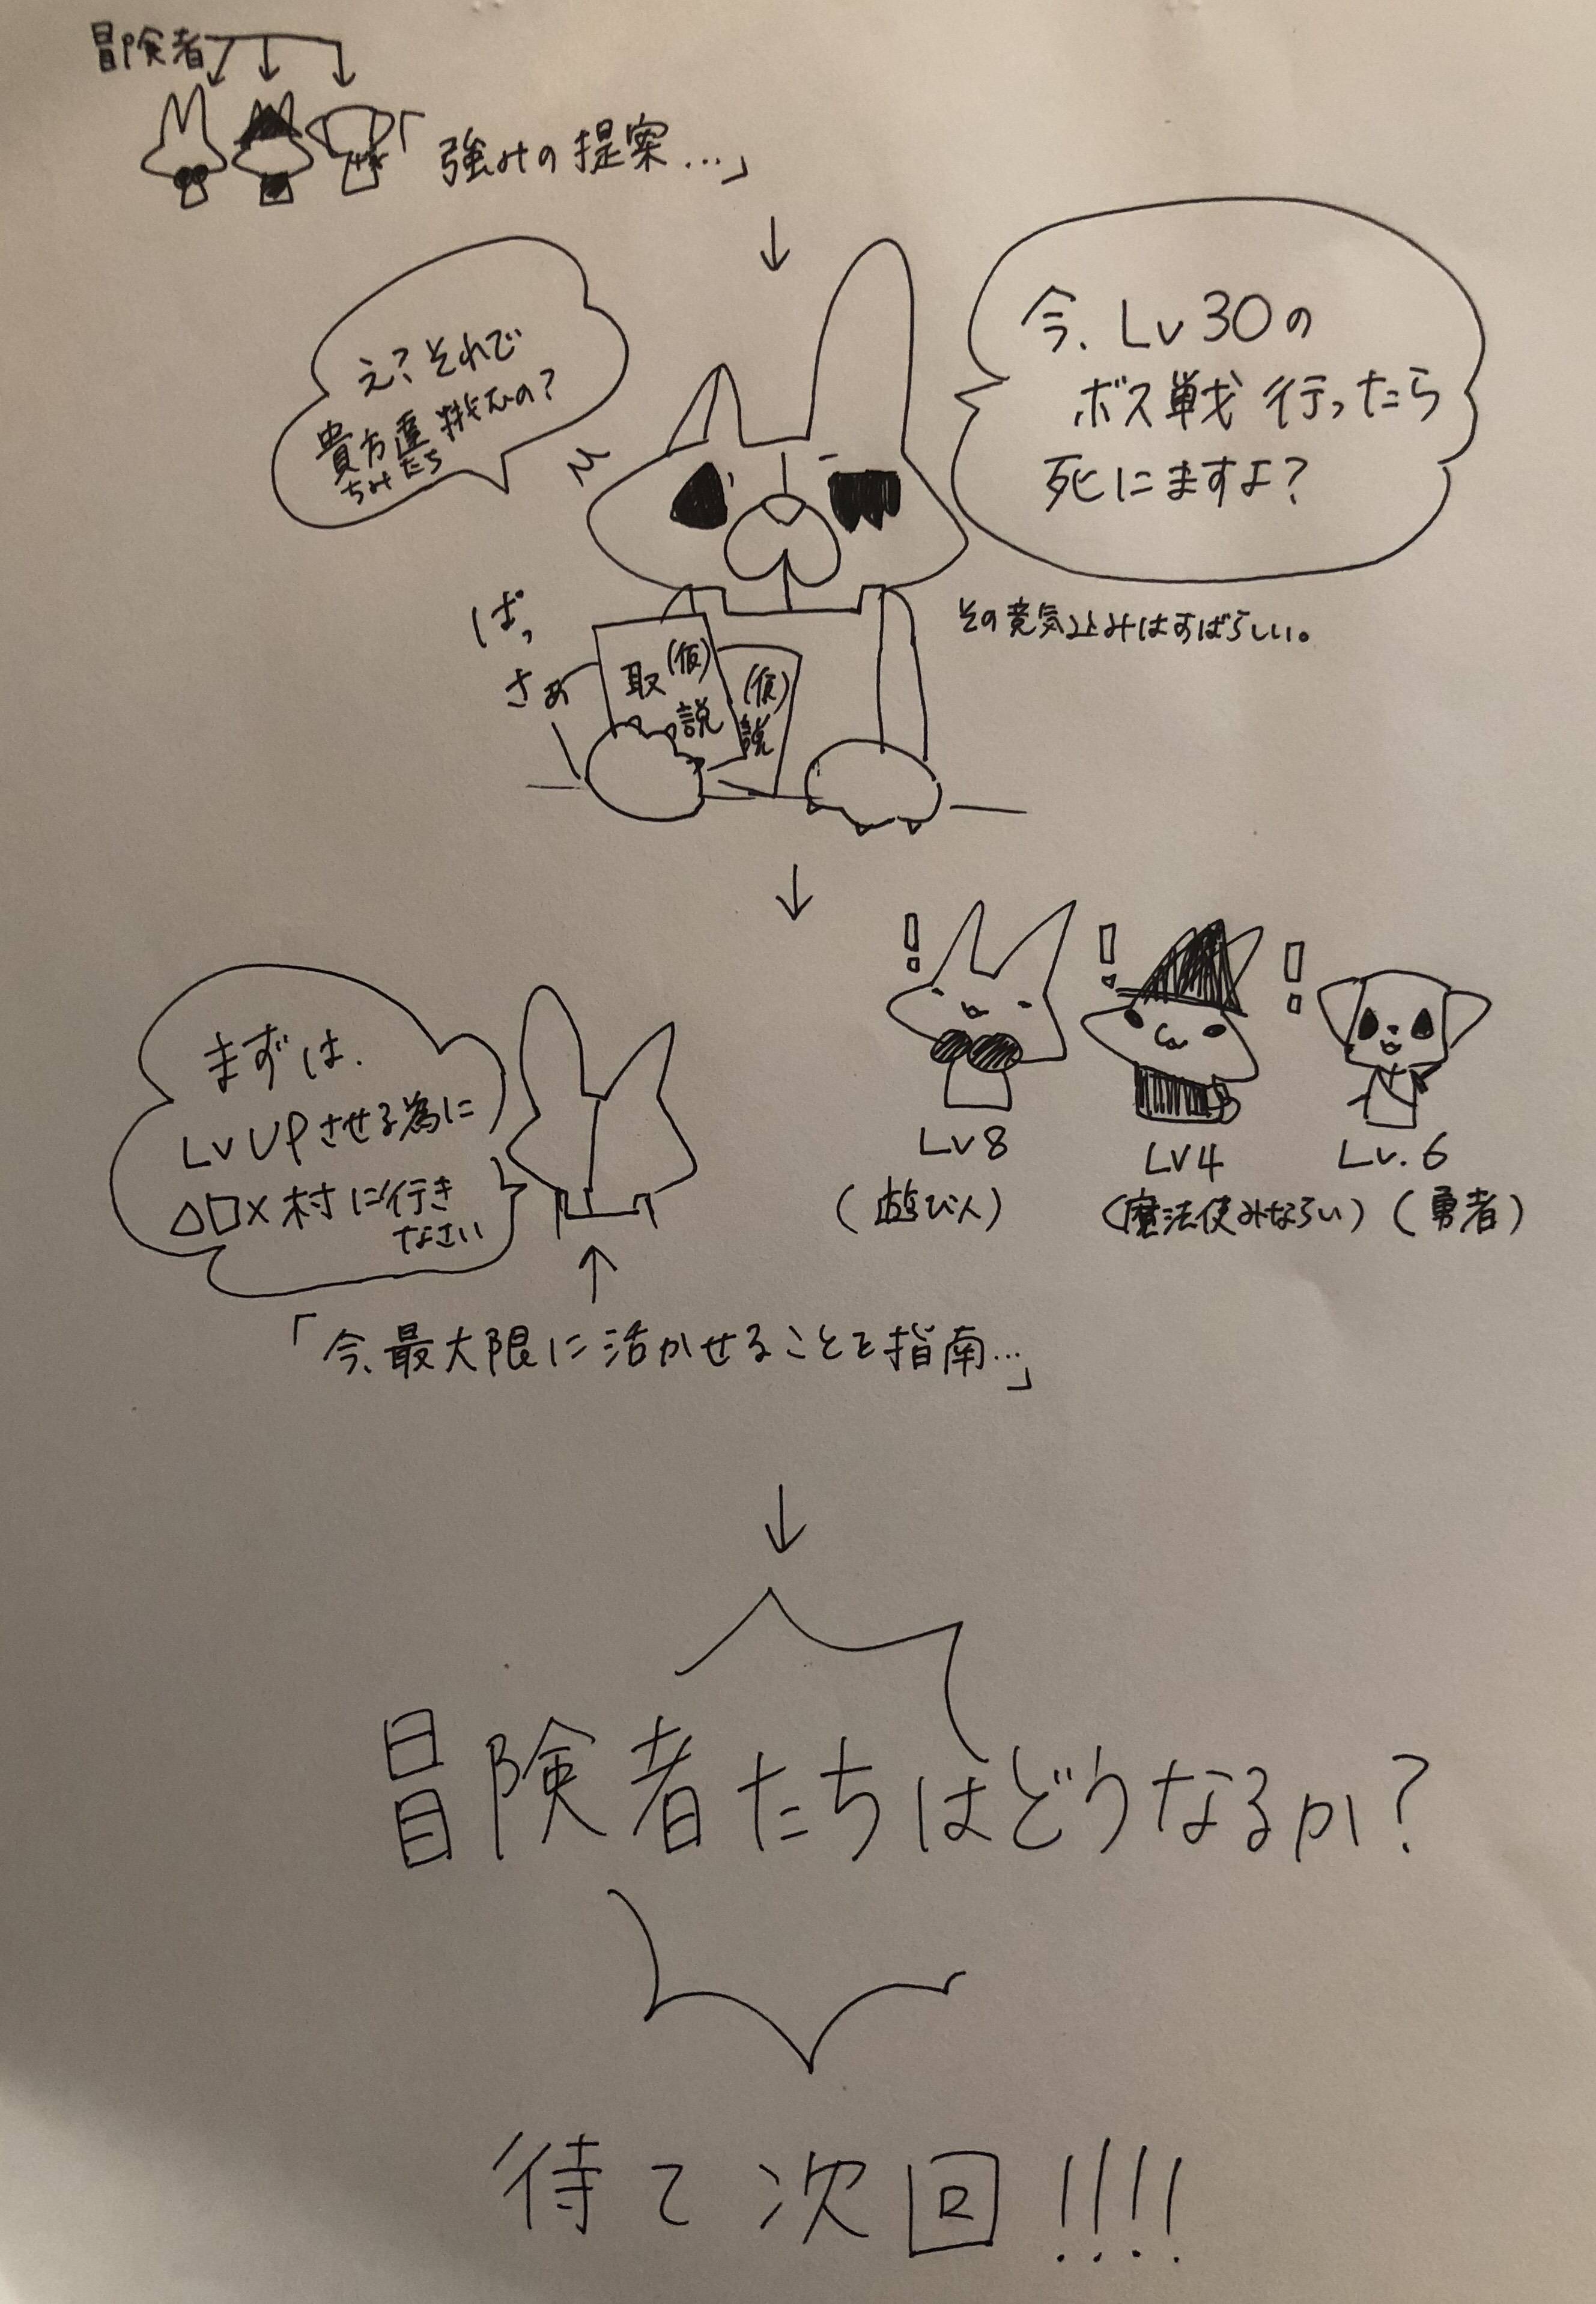 冒険者
「強みの提案…」
え?それで
貴方達挑むの?
ちみたち
今、Lv30の
ボス戦 行ったら
死にますよ?
その意気込みはすばらしい。
ばっ
さぁ
取(仮)
説
(仮)
説
まずは、
LvUPさせる為に
△□×村に行き
なさい
Lv8
(遊び人)
LV4
(魔法使みならい)
Lv.6
(勇者)
「今、最大限に活かせることを指南…」
冒険者たちはどうなるか?
待て次回!!!!